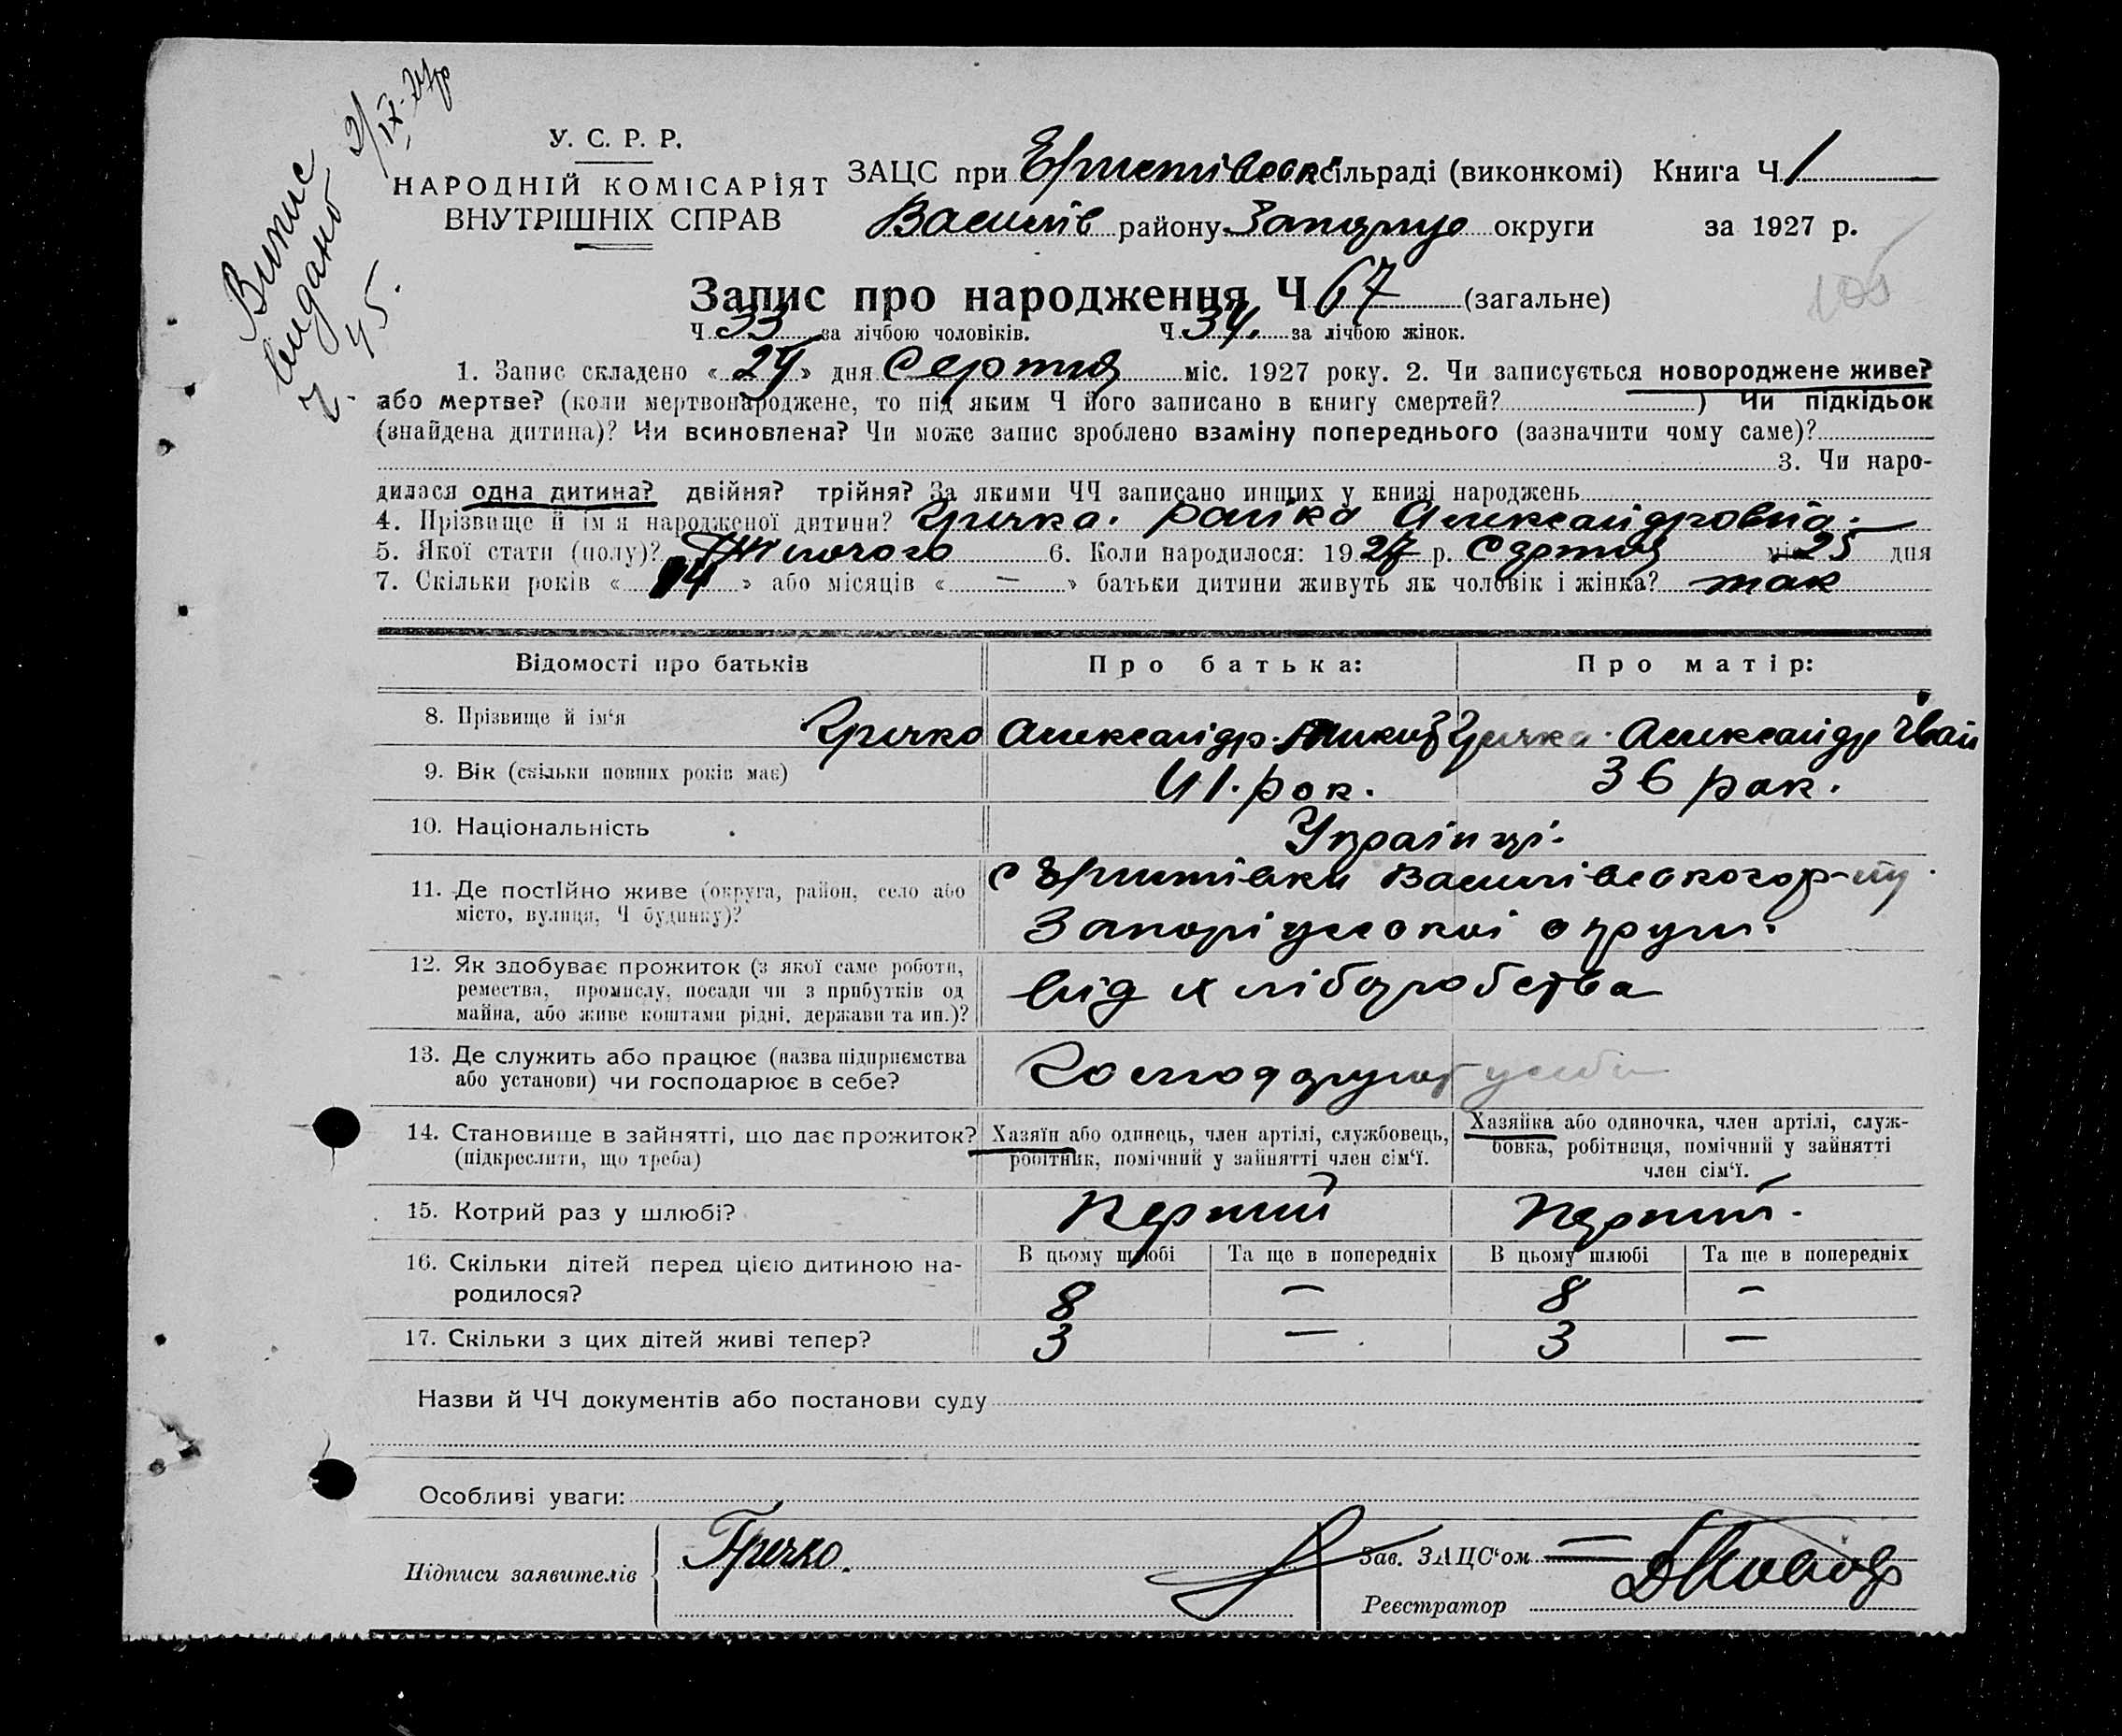 Випис
видано
ч. 45.
У. С. Р. Р.
НАРОДНІЙ КОМІСАРІЯТ
ВНУТРІШНІХ СПРАВ
ЗАЦС при Єристівськ сільраді (виконкомі) Книга Ч 1
Василів району Запоріз округи за 1927 р.
105
Запис про народження Ч 67 (загальне)
Ч 33 за лічбою чоловіків. Ч 34 за лічбою жінок.
1. Запис складено « 29 » дня Серпня міс. 1927 року. 2. Чи записується новороджене живе?
або мертве? (коли мертвонароджене, то під яким Ч його записано в книгу смертей? ) Чи підкідьок
(знайдена дитина)? Чи всиновлена? Чи може запис зроблено взаміну попереднього (зазначити чому саме)?
3. Чи наро-
дилася одна дитина? двійня? трійня? За якими ЧЧ записано инших у книзі народжень
4. Прізвище й ім'я народженої дитини? Гричка. Раїка Александровна.
5. Якої стати (полу)? Жіночого 6. Коли народилося: 1927 р. Серпня міс 25 дня
7. Скільки років « 14 » або місяців « — » батьки дитини живуть як чоловік і жінка? так
Відомості про батьків Про батька: Про матір:
8. Прізвище й ім'я Гричко Александр Гричка Александр Іван
9. Вік (скільки повних років має) 41. рок. 36 рок.
10. Національність Українці.
11. Де постійно живе (округа, район, село або с Єристівки Василівського р-ну
місто, вулиця, Ч будинку)? Запорізської округи.
12. Як здобуває прожиток (з якої саме роботи,
ремества, промислу, посади чи з прибутків од від хліборобства
майна, або живе коштами рідні, держави та ин.)?
13. Де служить або працює (назва підприємства
або установи) чи господарює в себе? Господарує у себе
14. Становище в зайнятті, що дає прожиток? Хазяїн або одинець, член артілі, службовець, Хазяйка або одиночка, член артілі, служ-
(підкреслити, що треба) робітник, помічний у зайнятті член сім'ї. бовка, робітниця, помічний у зайнятті
член сім'ї.
15. Котрий раз у шлюбі? Перший Перший.
16. Скільки дітей перед цією дитиною на- В цьому шлюбі Та ще в попередніх В цьому шлюбі Та ще в попередніх
родилося? 8 — 8 —
17. Скільки з цих дітей живі тепер? 3 — 3 —
Назви й ЧЧ документів або постанови суду
Особливі уваги:
Підписи заявителів Гречко. Зав. ЗАЦС'ом
Реєстратор